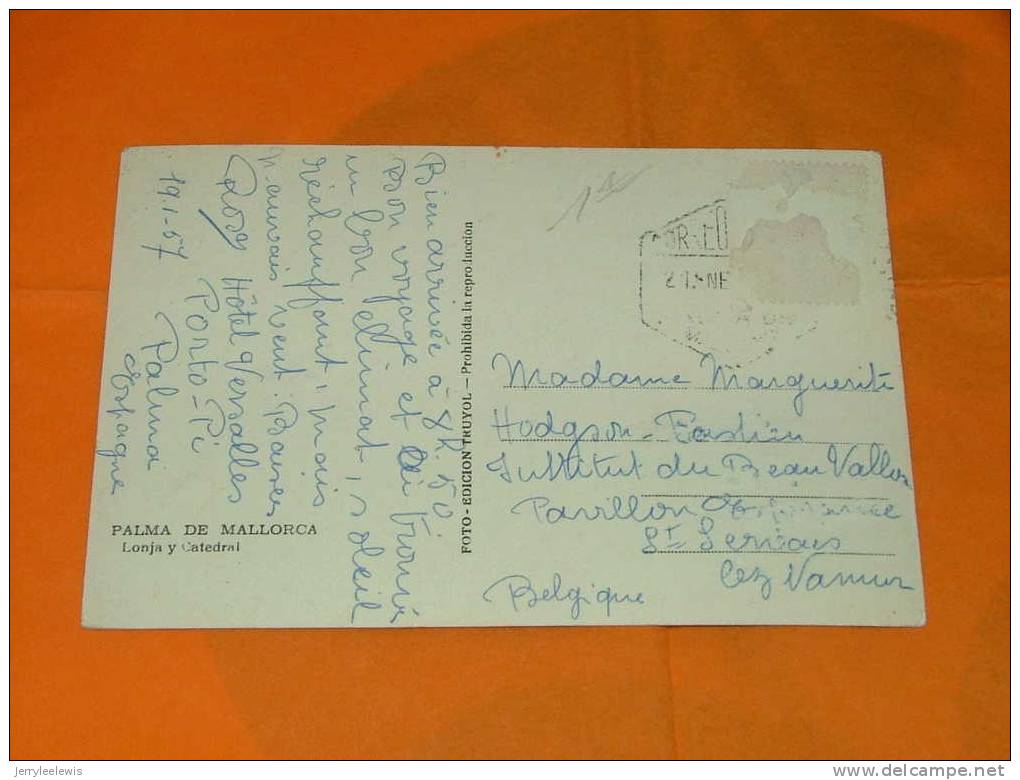 Bien arrivée à 8h.50
Bon voyage et ai trouvé
un bon climat, soleil
réchauffant, mais
mauvais vent. Baisers
Rosy Hôtel Versalles
Porto-Pi
Palma
Espagne
19.1.57
PALMA DE MALLORCA
Lonja y Catedral
FOTO - EDICION TRUYOL - Prohibida la reproduccion
CORREO
Madame Marguerite
Hodgson-
Institut du Beau Vallon
Pavillon
St Servais
Lez Namur
Belgique
jerryleelewis
www.delcampe.net